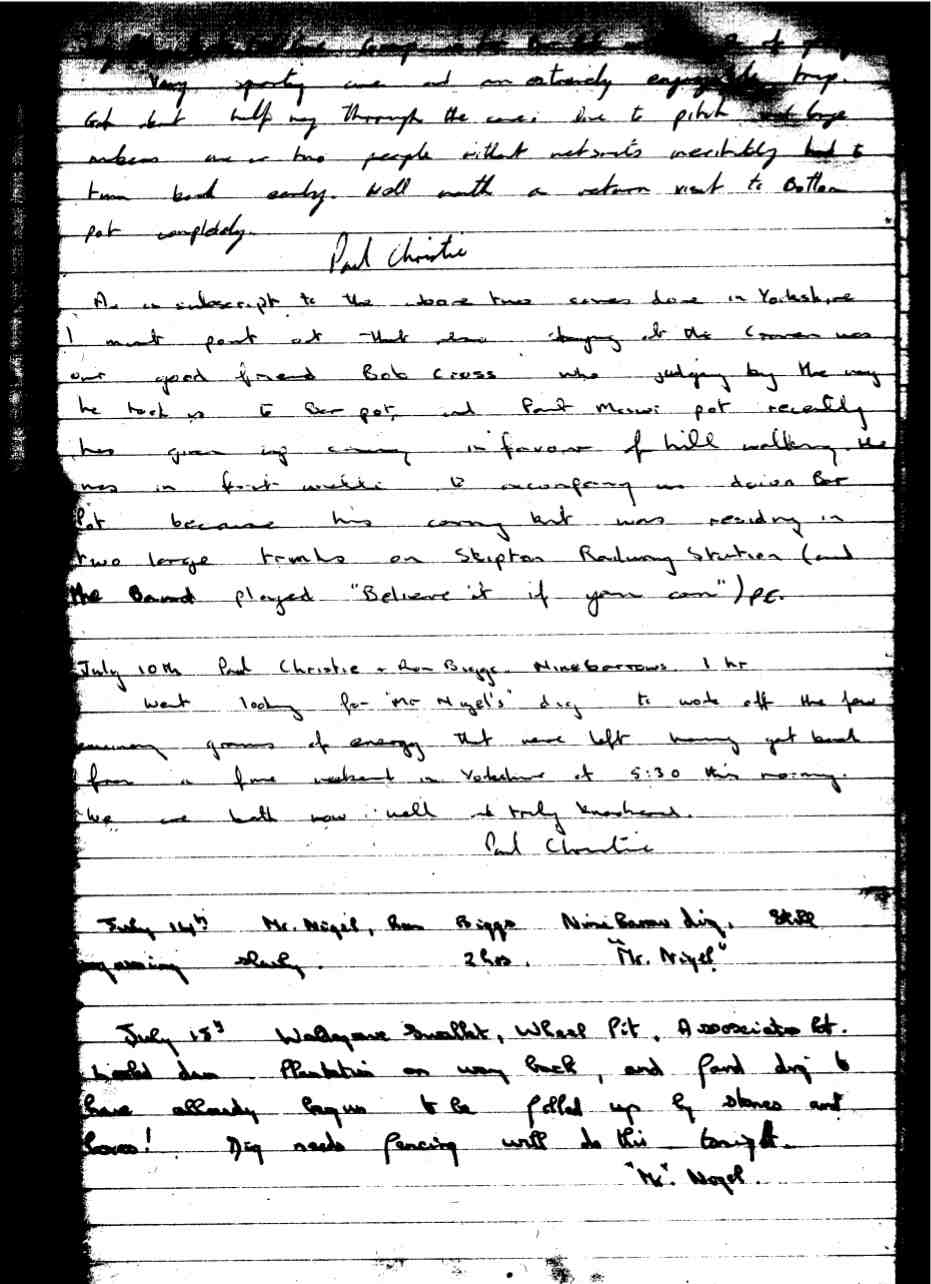 Very sporting cave and an extremely enjoyable trip.
Got about half way through the cave: due to pitch and large
numbers one or two people without wetsuits inevitably had to
turn back early. Well worth a return visit to Bottom
pot completely.
Paul Christie
As a subscript to the above two caves done in Yorkshire
I must point out that also staying at the Craven was
our good friend Bob Cross who judging by the way
he took us to Bar pot, and pot recently
has given up caving in favour of hill walking. He
was in to accompany us down Bar
Pot because his caving kit was residing in
two large trunks on Skipton Railway Station (and
the Band played "Believe it if you can") PC.
July 10th Paul Christie + Ron Biggs. Ninebarrows. 1 hr
Went looking for 'Mr Nigel's' dig to work off the few
grams of energy that were left having got back
from a fine weekend in Yorkshire at 5:30 this morning.
We are both now well and truly knackered.
Paul Christie
July 14th Mr. Nigel, Ron Biggs Nine Barrow dig, Still
progressing slowly. 2 hrs. "Mr. Nigel"
July 15th Waldegrave Swallet, Wheel Pit, Associates Pot.
down Plantation on way back, and found dig to
have already begun to be filled up by stones and
boxes! Dig needs fencing will do this tonight.
"Mr". Nigel.